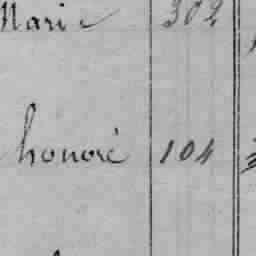 Marie 302
honoré 104